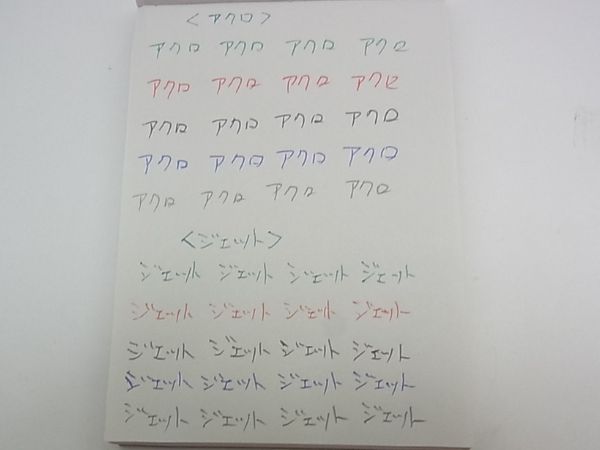 <アクロ>
アクロ アクロ アクロ アクロ
アクロ アクロ アクロ アクロ
アクロ アクロ アクロ アクロ
アクロ アクロ アクロ アクロ
アクロ アクロ アクロ アクロ
<ジェット>
ジェット ジェット ジェット ジェット
ジェット ジェット ジェット ジェット
ジェット ジェット ジェット ジェット
ジェット ジェット ジェット ジェット
ジェット ジェット ジェット ジェット